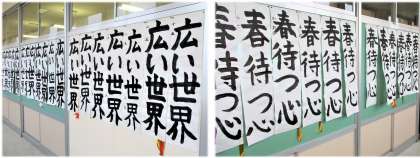 広い世界
広い世界
広い世界
広い世界
広い世界
広い世界
広い世界
春待つ心
春待つ心
春待つ心
春待つ心
春待つ心
春待つ心
春待つ心